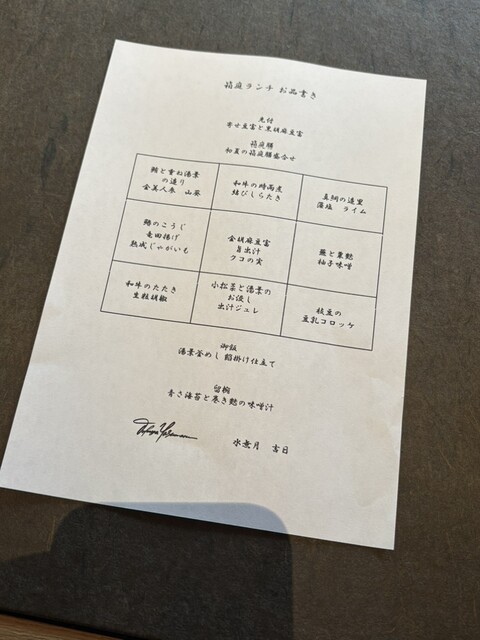 箱庭ランチ お品書き
先付
寄せ豆富と黒胡麻豆富
箱庭膳
和夏の箱庭膳盛合せ
鮪と重ね湯葉
の造り
金美人参 山葵
和牛の時雨煮
結びしらたき
真鯛の造里
藻塩 ライム
鶏のこうじ
竜田揚げ
熟成じゃがいも
金胡麻豆富
旨出汁
クコの実
蕪と粟麩
柚子味噌
和牛のたたき
生粒胡椒
小松菜と湯葉の
お浸し
出汁ジュレ
枝豆の
豆乳コロッケ
御飯
湯葉釜めし 餡掛け仕立て
留椀
青さ海苔と巻き麩の味噌汁
水無月 吉日